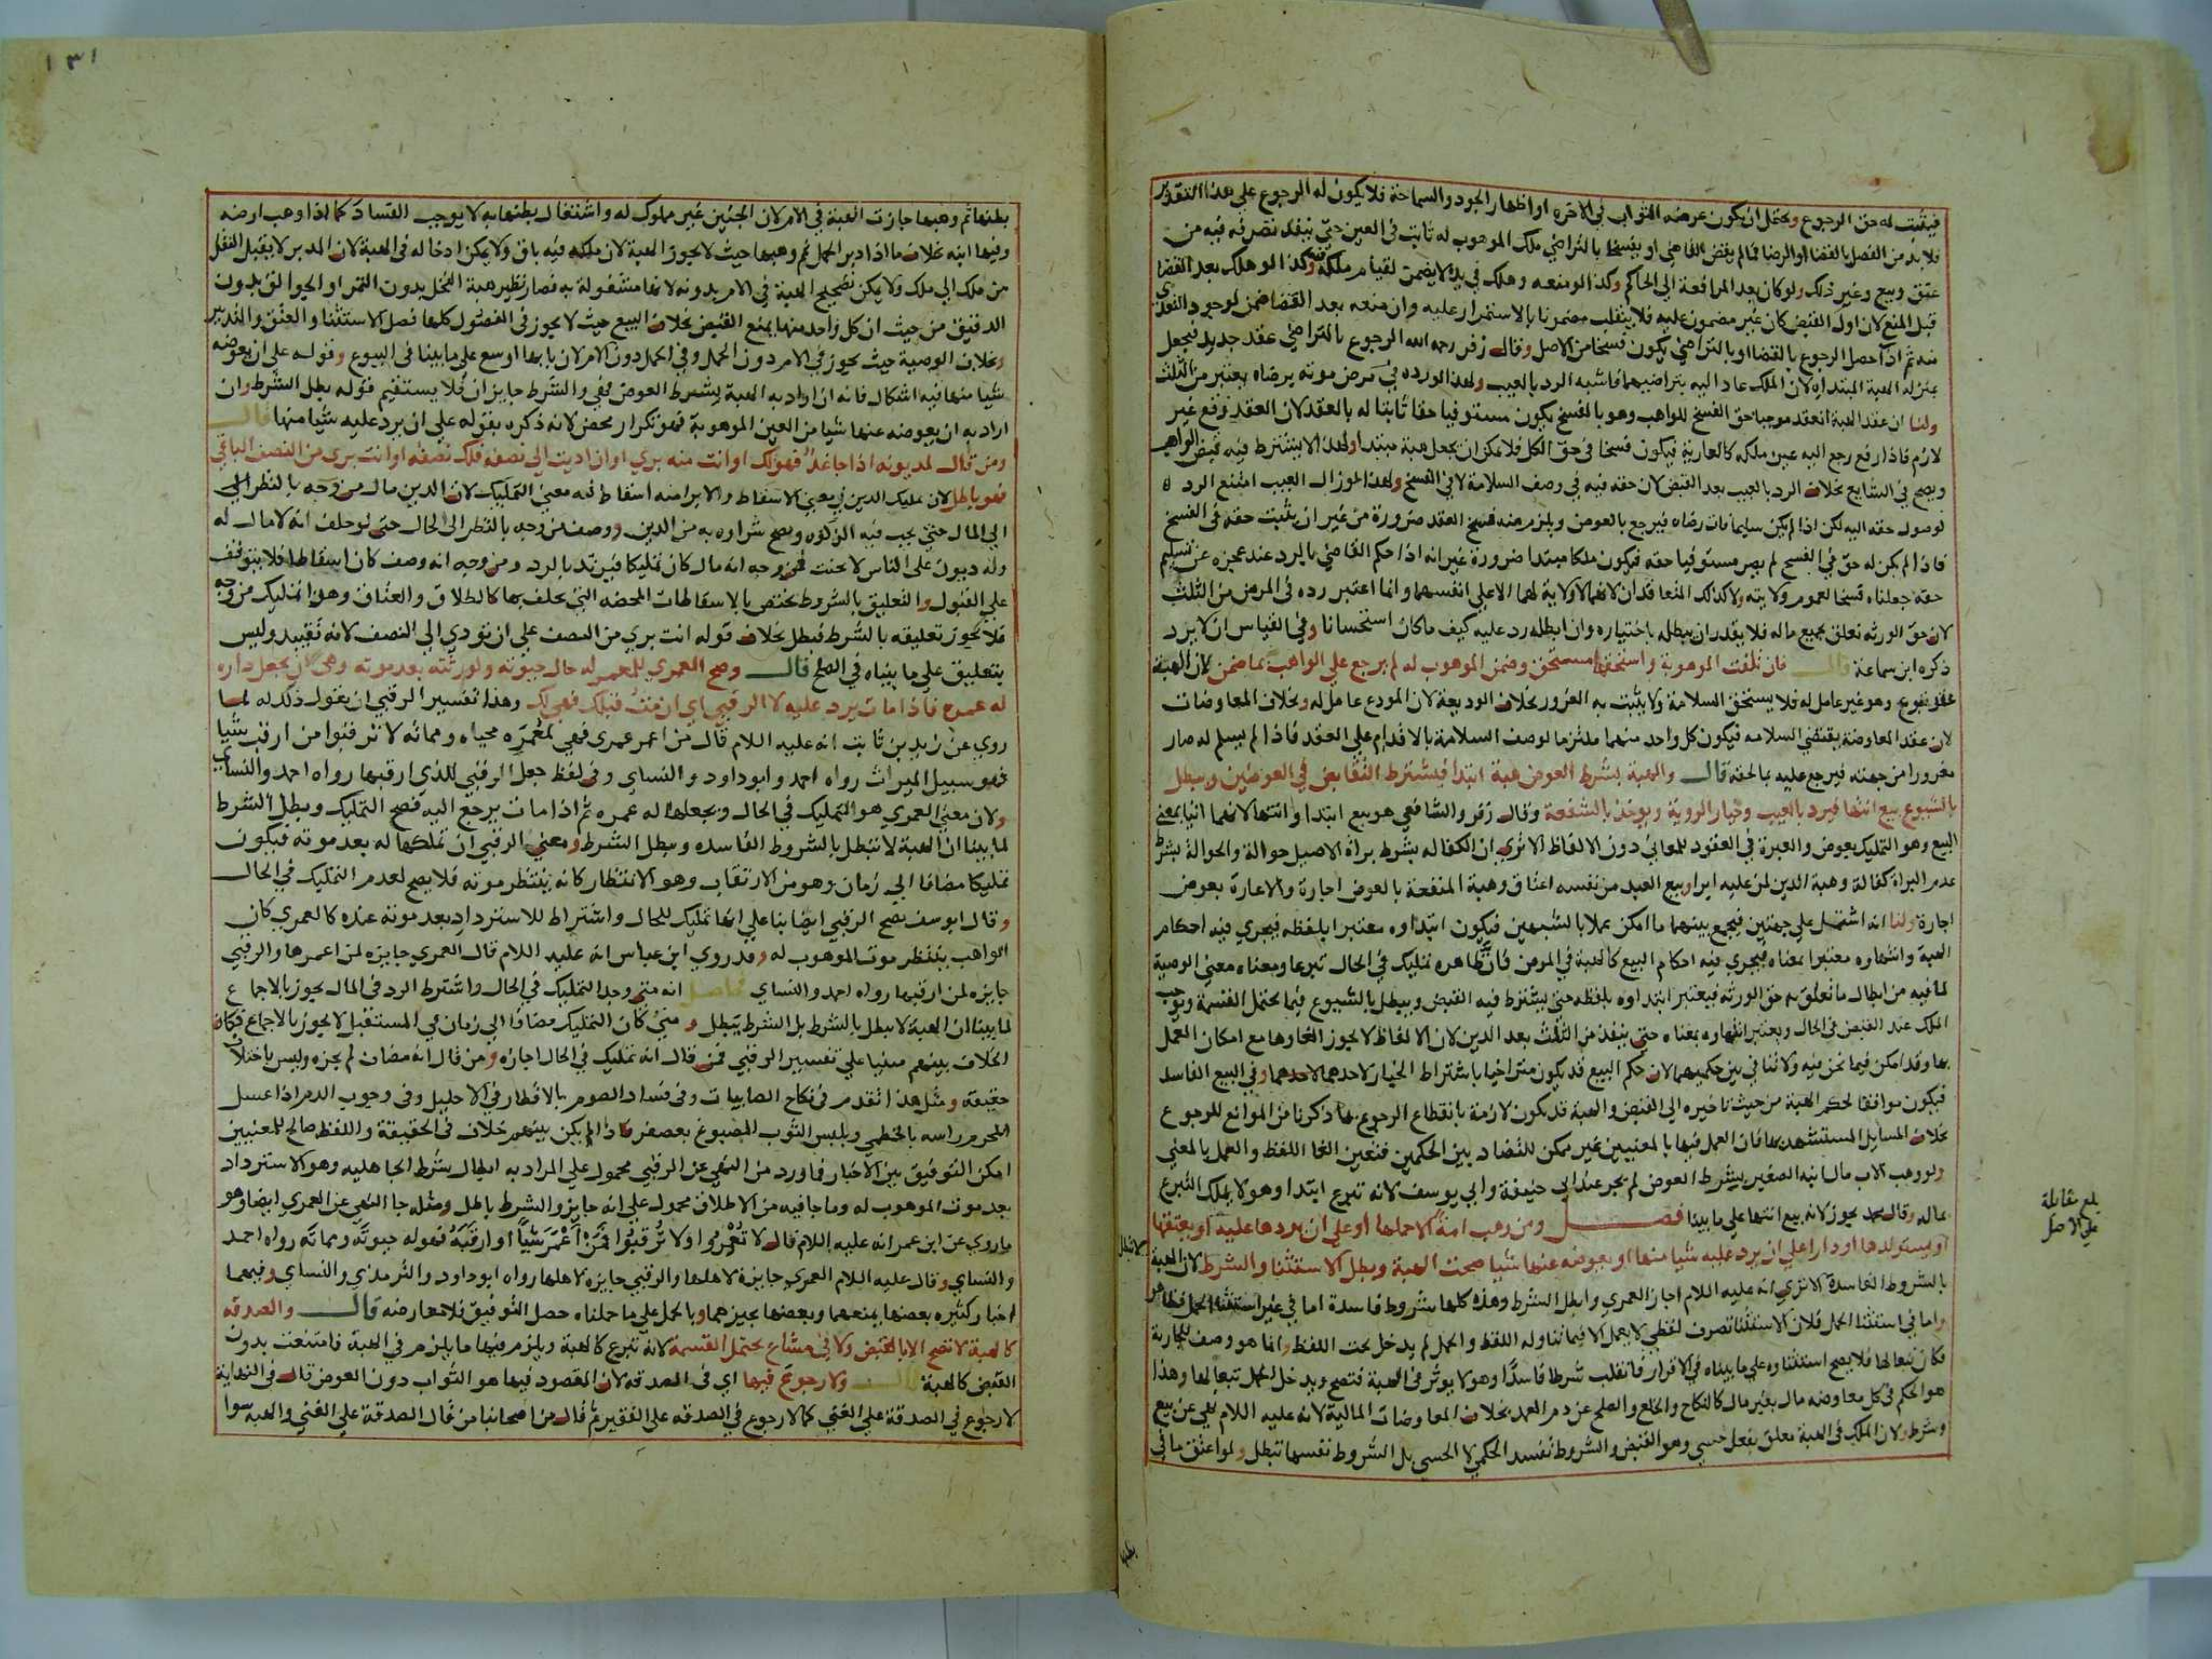 فيثبت له حق الرجوع ويحتمل ان يكون غرضه الثواب في الاخره او اظهار الجود والسماحة فلا يكون له الرجوع على هذا التقدير
فلا بد من الفصل بالقضا او الرضا فما لم يقض القاضي او يفسخا بالتراضي ملك الموهوب له ثابت في العين حتى ينفذ تصرفه فيه من
عتق وبيع وغير ذلك ولو كان بعد المرافعة الى الحاكم وكذا لو منعه وهلك في يده لا يضمن لقيام ملكه فيه وكذا لو هلك بعد القضا
قبل المنع لان اول القبض كان غير مضمون عليه فلا ينقلب مضمونا بالاستمرار عليه وان منعه بعد القضا ضمن لوجود التعدي
منه ثم اذا حصل الرجوع بالقضا او بالتراضي يكون فسخا من الاصل وقال زفر رحمه الله الرجوع بالتراضي عقد جديد فيجعل
بمنزلة الهبة المبتداه لان الملك عاد اليه بتراضيهما فاشبه الرد بالعيب ولهذا لو رده في مرض موته برضاه يعتبر من الثلث
ولنا ان عقد الهبة انعقد موجبا حق الفسخ للواهب وهو بالفسخ يكون مستوفيا حقا ثابتا له بالعقد لان العقد وقع غير
لازم فاذا رفع رجع اليه عين ملكه كالعارية فيكون فسخا في حق الكل فلا يمكن ان يجعل هبة مبتدا ولهذا لا يشترط فيه قبض الواهب
ويصح في الشايع بخلاف الرد بالعيب بعد القبض لان حقه فيه في وصف السلامة لا في الفسخ ولهذا لو زال العيب امتنع الرد
لوصول حقه اليه لكن اذا لم يكن سليما فات رضاه فيرجع بالعوض ويلزم منه فسخ العقد ضرورة من غير ان يثبت حقه في الفسخ
فاذا لم يكن له حق في الفسخ لم يصر مستوفيا حقه فيكون ملكا مبتدا ضرورة غير انه اذا حكم القاضي بالرد عند عجزه عن تسليم
حقه جعلناه فسخا لعموم ولايته ولا كذلك المتعاقدان لانهما لا ولاية لهما الا على انفسهما وانما اعتبر رده في المرض من الثلث
لان حق الورثه تعلق بجميع ماله فلا يقدر ان يبطله باختياره وان ابطله رد عليه كيف ما كان استحسانا وفي القياس ان لا يرد
ذكره ابن سماعة قال فان تلفت الموهوبة واستحقها مستحق وضمن الموهوب له لم يرجع على الواهب بما ضمن لان الهبة
عقد تبرع وهو غير عامل له فلا يستحق السلامة ولا يثبت به الغرور بخلاف الوديعة لان المودع عامل له وبخلاف المعاوضات
لان عقد المعاوضة يقتضي السلامه فيكون كل واحد منهما ملتزما لوصف السلامة بالاقدام على العقد فاذا لم يسلم له صار
مغرورا من جهته فيرجع عليه بما لحقه قال والهبة بشرط العوض هبة ابتدا فيشترط التقابض في العوضين ويبطل
بالشيوع بيع انتها فيرد بالعيب وخيار الروية ويوخذ بالشفعة وقال زفر والشافعي هو بيع ابتدا وانتها لانهما اتيا بمعنى
البيع وهو التمليك بعوض والعبرة في العقود للمعاني دون الالفاظ الا ترى ان الكفاله بشرط براة الاصيل حوالة والحوالة بشرط
عدم البراة كفالة وهبة الدين لمن عليه ابرا وبيع العبد من نفسه اعتاق وهبة المنفعة بالعوض اجارة والاعارة بعوض
اجارة ولنا انه اشتمل على جهتين فيجمع بينهما ما امكن عملا بالشبهين فيكون ابتداوه معتبرا بلفظه فيجري فيه احكام
الهبة وانتهاوه معتبرا بمعناه فيجري فيه احكام البيع كالهبة في المرض فان ظاهره تمليك في الحال تبرعا ومعناه معنى الوصية
لما فيه من ابطال ما تعلق به حق الورثه فيعتبر ابتداوه بلفظه حتى يشترط فيه القبض ويبطل بالشيوع فيما يحتمل القسمة ويوجب
الملك عند القبض في الحال ويعتبر انتهاوه بمعناه حتى ينفذ من الثلث بعد الدين لان الالفاظ لا يجوز الغاوها مع امكان العمل
بها وقد امكن فيما نحن فيه ولا تنافي بين حكميهما لان حكم البيع قد يكون متراخيا باشتراط الخيار لاحدهما وفي البيع الفاسد
فيكون موافقا لحكم الهبة من حيث تاخيره الى القبض والهبة قد يكون لازمة بانقطاع الرجوع بما ذكرنا من الموانع للرجوع
بخلاف المسايل المستشهد بها فان العمل فيها بالمعنيين غير ممكن للتضاد بين الحكمين فتعين الغا اللفظ والعمل بالمعنى
ولو وهب الاب مال ابنه الصغير بشرط العوض لم يجز عند ابي حنيفة وابي يوسف لانه تبرع ابتدا وهو لا يملك التبرع
بماله وقال محمد يجوز لانه بيع انتها على ما بينا فصل ومن وهب امة الا حملها او على ان يردها عليه او يعتقها
او يستولدها او دارا على ان يرد عليه شيا منها او يعوضه عنها شيا صحت الهبة وبطل الاستثنا والشرط لان الهبة لا تبطل
بالشروط الفاسدة الا ترى انه عليه السلام اجاز العمري وابطل الشرط وهذه كلها شروط فاسدة اما في غير استثنا الحمل فظاهر
واما في استثنا الحمل فلان الاستثنا تصرف لفظي لا يعمل الا فيما تناوله اللفظ والحمل لم يدخل تحت اللفظ وانما هو وصف للجارية
فكان تبعا لها فلا يصح استثناوه على ما بيناه في الاقرار فانقلب شرطا فاسدا وهو لا يوثر في الهبة فتصح ويدخل الحمل تبعا لها وهذا
هو الحكم في كل معاوضه مال بغير مال كالنكاح والخلع والصلح عن دم العمد بخلاف المعاوضات المالية لانه عليه السلام نهى عن بيع
وشرط ولان الملك في الهبة معلق بفعل حسي وهو القبض والشروط تفسد الحكمي لا الحسي بل الشروط نفسها تبطل ولو اعتق ما في
بلغ مقابلة
على الاصل
١٣١
بطنها ثم وهبها جازت الهبة في الام لان الجنين غير مملوك له واشتغال بطنها به لا يوجب الفساد كما اذا وهب ارضه
وفيها ابنه بخلاف ما اذا دبر الحمل ثم وهبها حيث لا يجوز الهبة لان ملكه فيه باق ولا يمكن ادخاله في الهبة لان المدبر لا يقبل النقل
من ملك الى ملك ولا يمكن تصحيح الهبة في الام بدونه لانها مشغولة به فصار نظير هبة النخل بدون التمر او الجوالق بدون
الدقيق من حيث ان كل واحد منهما يمنع القبض بخلاف البيع حيث لا يجوز في الفصول كلها فصل الاستثنا والعتق والتدبير
وبخلاف الوصية حيث يجوز في الام دون الحمل وفي الحمل دون الام لان بابها اوسع على ما بينا في البيوع وقوله على ان يعوضه
شيا منها فيه اشكال فانه ان اراد به الهبة بشرط العوض فهي والشرط جايزان فلا يستقيم قوله بطل الشرط وان
اراد به ان يعوضه عنها شيا من العين الموهوبة فهو تكرار محض لانه ذكره بقوله على ان يرد عليه شيا منها قال
ومن قال لمديونه اذا جا غد فهو لك او انت منه بري او ان اديت الي نصفه فلك نصفه او انت بري من النصف الباقي
فهو باطل لان تمليك الدين في معنى الاسقاط والابرا منه اسقاط فيه معنى التمليك لان الدين مال من وجه بالنظر الى
الى المال حتى يجب فيه الزكوة ويصح شراوه به من الدين ووصف من وجه بالنظر الى الحال حتى لو حلف انه لا مال له
وله ديون على الناس لا يحنث فمن وجه انه مال كان تمليكا فيرتد بالرد ومن وجه انه وصف كان اسقاطا فلا يتوقف
على القبول والتعليق بالشروط يختص بالاسقاطات المحضه التي يحلف بها كالطلاق والعتاق وهذا تمليك من وجه
فلا يجوز تعليقه بالشرط فبطل بخلاف قوله انت بري من النصف على ان تودي الي النصف لانه تقييد وليس
بتعليق على ما بيناه في الصلح قال وصح العمري للمعمر له حال حيوته ولورثته بعد موته وهي ان يجعل داره
له عمره فاذا مات يرد عليه لا الرقبى اي ان مت قبلك فهي لك وهذا تفسير الرقبى ان يقول ذلك له لما
روي عن زيد بن ثابت انه عليه السلام قال من اعمر عمرى فهي لمعمره محياه ومماته لا ترقبوا من ارقب شيا
فهو سبيل الميراث رواه احمد وابو داود والنساي وفي لفظ جعل الرقبى للذي ارقبها رواه احمد والنساي
ولان معنى العمري هو التمليك في الحال ويجعلها له عمره ثم اذا مات يرجع اليه فصح التمليك وبطل الشرط
لما بينا ان الهبة لا تبطل بالشروط الفاسده ويبطل الشرط ومعنى الرقبى ان تملكها له بعد موته فيكون
تمليكا مضافا الى زمان وهو من الارتقاب وهو الانتظار كانه ينتظر موته فلا يصح لعدم التمليك في الحال
وقال ابو يوسف يصح الرقبى ايضا بنا على انها تمليك للحال واشتراط للاسترداد بعد موته عنده كالعمري كان
الواهب ينتظر موت الموهوب له وقد روي ابن عباس انه عليه السلام قال العمري جايزه لمن اعمرها والرقبى
جايزه لمن ارقبها رواه احمد والنساي فحاصل انه متى وجد التمليك في الحال واشترط الرد في المال يجوز بالاجماع
لما بينا ان الهبة لا يبطل بالشرط بل الشرط يبطل ومتى كان التمليك مضافا الى زمان في المستقبل لا يجوز بالاجماع فكان
الخلاف بينهم مبنيا على تفسير الرقبى فمن قال انه تمليك في الحال اجازه ومن قال انه مضاف لم يجزه وليس باختلاف
حقيقة ومثل هذا تقدم في نكاح الصابيات وفي فساد الصوم بالاقطار في الاحليل وفي وجوب الدم اذا غسل
المحرم راسه بالخطمي ويلبس الثوب المصبوغ بعصفر فاذا لم يكن بينهم خلاف في الحقيقة واللفظ صالح للمعنيين
امكن التوفيق بين الاخبار فما ورد من النهي عن الرقبى محمول على المراد به ابطال شرط الجاهليه وهو الاسترداد
بعد موت الموهوب له وما جا فيه من الاطلاق محمول على انه جايز والشرط باطل ومثله جا النهي عن العمري ايضا وهو
ما روي عن ابن عمر انه عليه السلام قال لا تعمروا ولا ترقبوا فمن اعمر شيا او ارقبه فهو له حيوته ومماته رواه احمد
والنساي وقال عليه السلام العمري جايزة لاهلها والرقبى جايزه لاهلها رواه ابو داود والترمذي والنساي وفيهما
اخبار كثيره بعضها يمنعهما وبعضها يجيزهما وبالحمل على ما حملناه حصل التوفيق فلا معارضه قال والصدقه
كالهبة لا تصح الا بالقبض ولا في مشاع يحتمل القسمة لانه تبرع كالهبة ويلزم فيها ما يلزم في الهبة فامتنعت بدون
القبض كالهبة قال ولا رجوع فيها اي في الصدقه لان المقصود فيها هو الثواب دون العوض قال في النهاية
لا رجوع في الصدقة على الغني كما لا رجوع في الصدقه على الفقير ثم قال من اصحابنا من قال الصدقة على الغني والهبه سوا